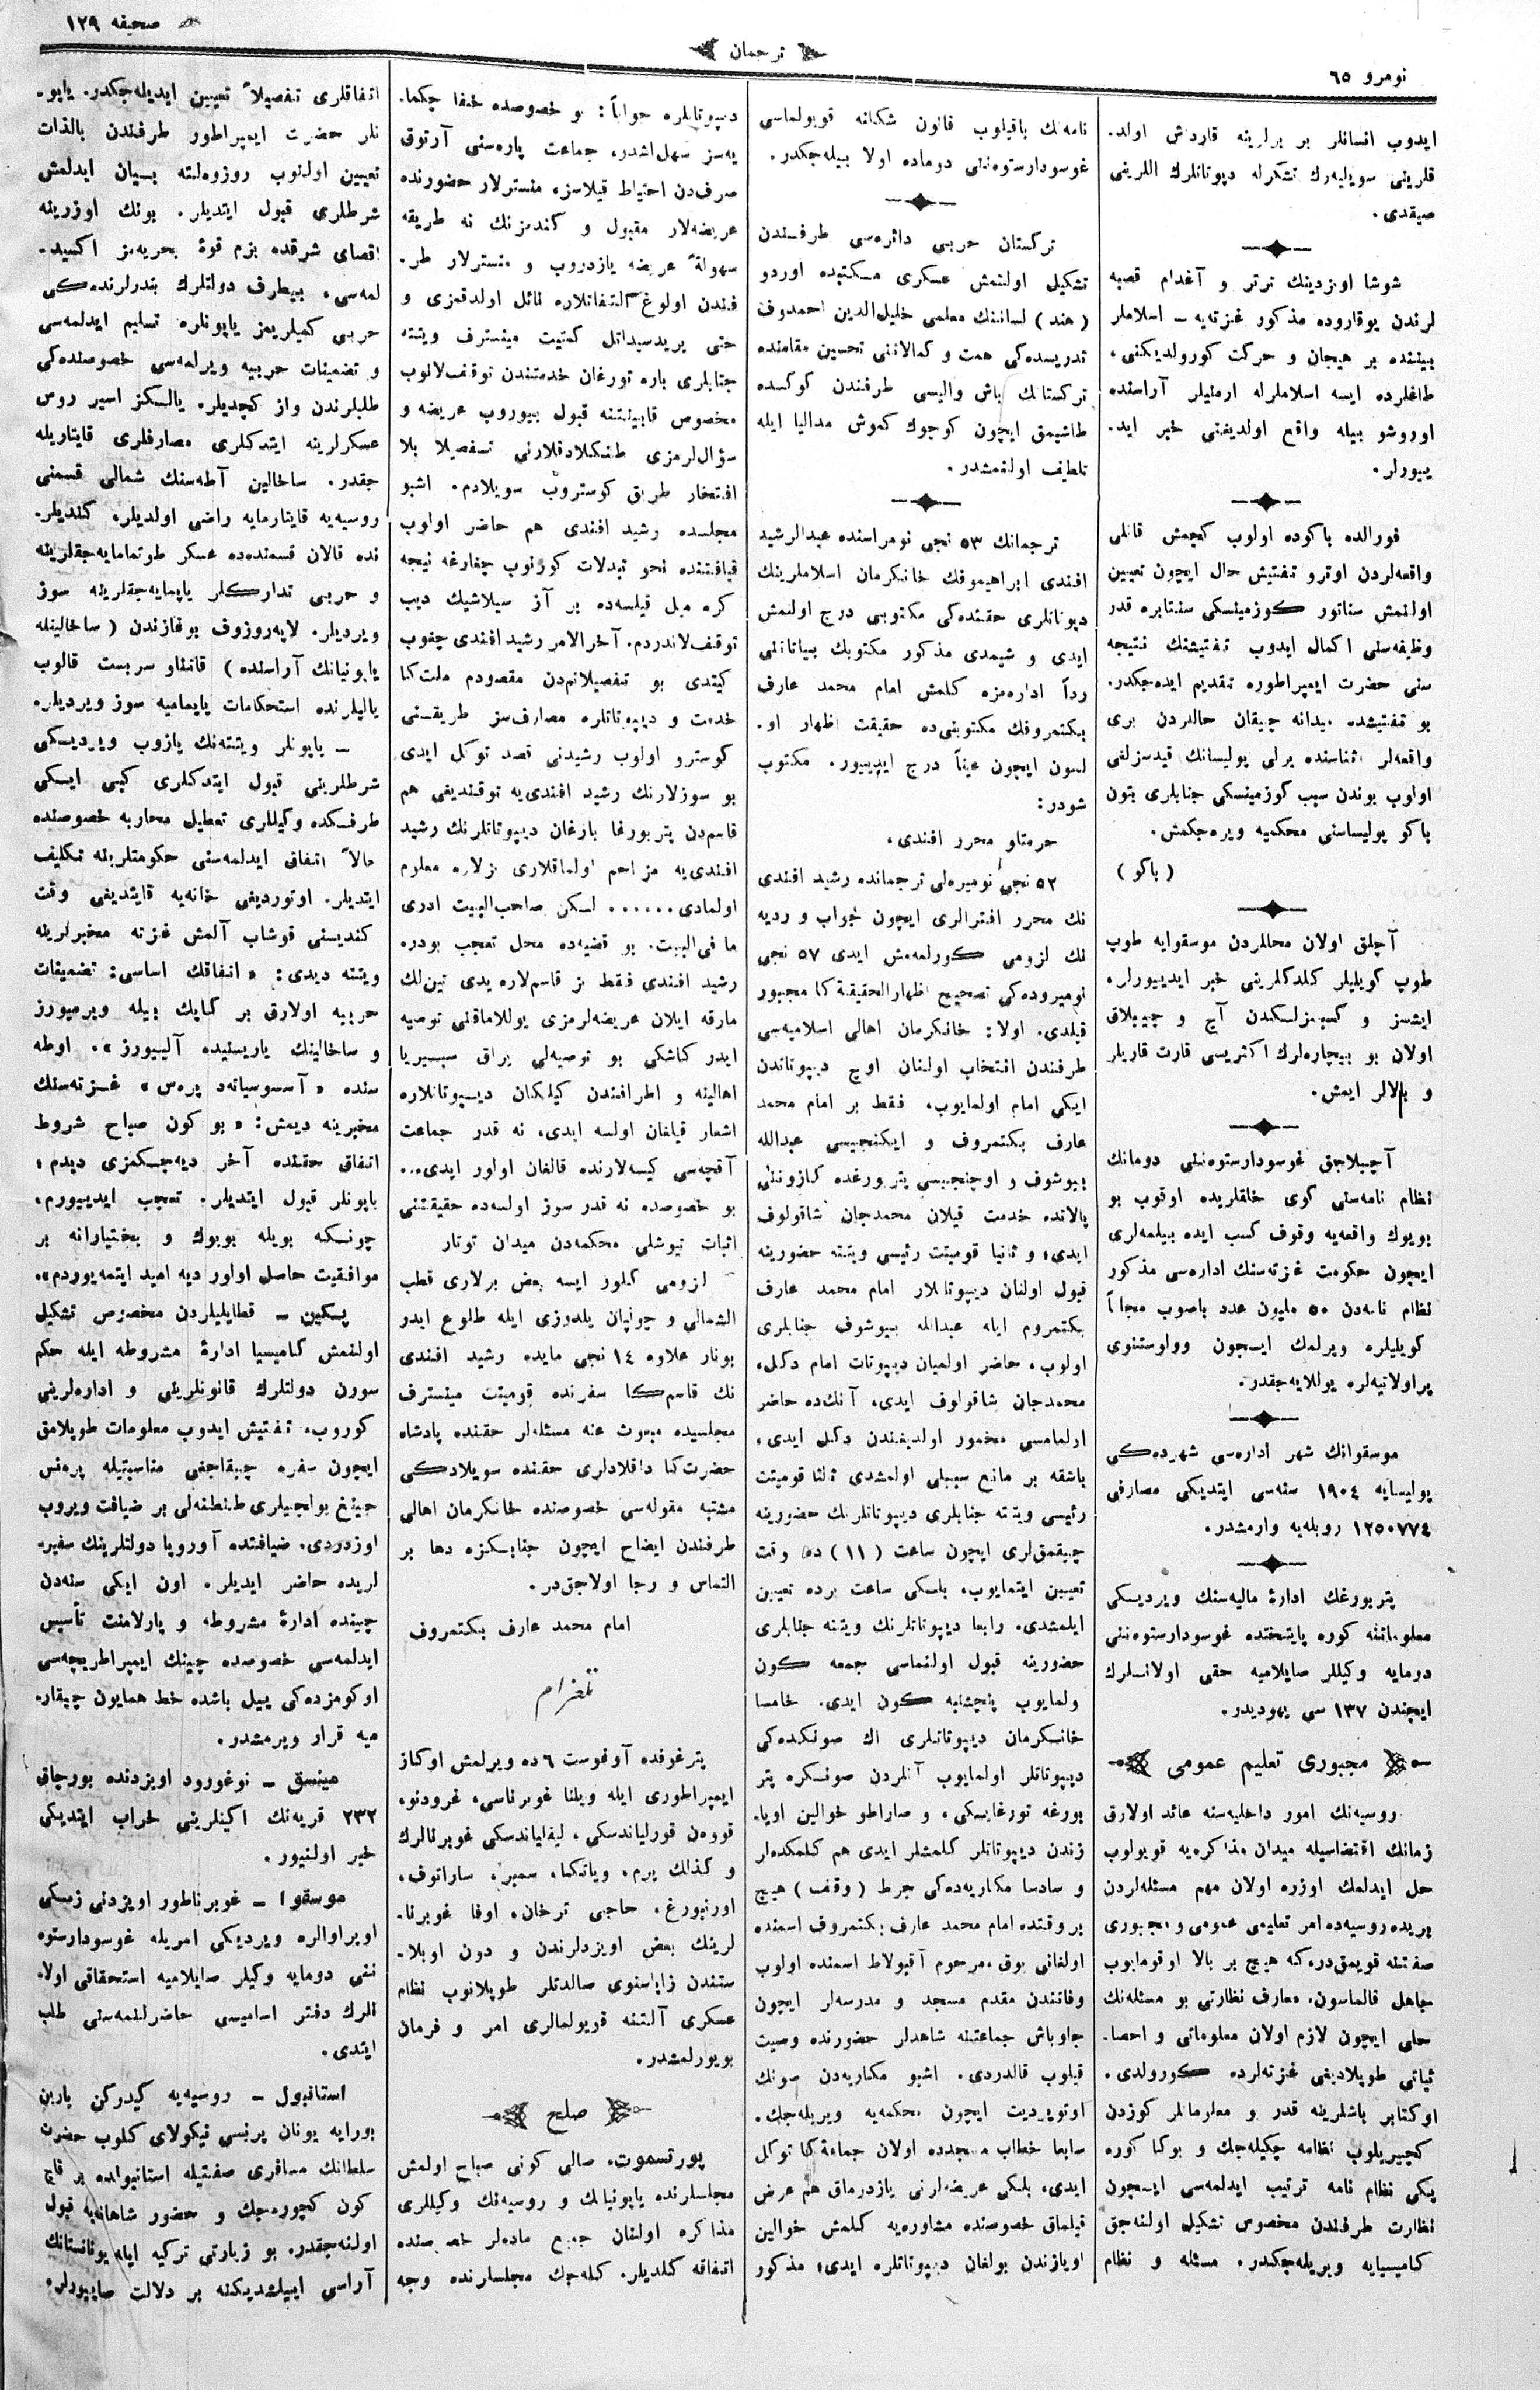 نومرو ٦٥
ترجمان
صحیفه ١٢٩
ایدوب انسانلر بر برلرینه قارداش اولد-
قلرینی سویلیه‌رك تشکرله دپوتاتلرك اللرینی
صیقدی.
شوشا اویزدینك ترتر و آغدام قصبه
لرندن یوقاروده مذکور غزته‌یه – اسلاملر
بیننده بر هیجان و حرکت کورولدیکنی،
طاغلرده ایسه اسلاملرله ارمنیلر آراسنده
اوروشو بیله واقع اولدیغنی خبر اید-
ییورلر.
فورالده باکوده اولوب کچمش قانلی
واقعه‌لردن اوترو تفتیش حال ایچون تعیین
اولنمش سناتور کوزمینسکی سنتابره قدر
وظیفه‌سنی اکمال ایدوب تفتیشنك نتیجه
سنی حضرت ایمپراطوره تقدیم ایده‌جکدر.
بو تفتیشده میدانه چیقان حاللردن بری
واقعه‌لر اثناسنده یرلی پولیسانك قیدسزلغی
اولوب بوندن سبب کوزمینسکی جنابلری بتون
باکو پولیساسنی محکمیه ویره‌جکمش.
( باکو )
آچلق اولان محاللردن موسقوایه طوپ
طوپ کویلیلر کلدکلرینی خبر ایدییورلر.
ایشسز و کسبسزلکدن آچ و چیپلاق
اولان بو بیچاره‌لرك اکثریسی قارت قاریلر
و بالالر ایمش.
آچیلاجق غوسودارستوه‌ننی دومانك
نظام نامه‌سنی کوی خلقلریده اوقوب بو
بویوك واقعه‌یه وقوف کسب ایده بیلمه‌لری
ایچون حکومت غزته‌سنك اداره‌سی مذکور
نظام نامه‌دن ٥٠ ملیون عدد باصوب مجاناً
کویلیلره ویرلمك ایچون وولوستنوی
پراولانیه‌لره یوللایه‌جقدر.
موسقوانك شهر اداره‌سی شهرده‌کی
پولیسایه ١٩٠٤ سنه‌سی ایتدیکی مصارفی
١٢٥٠٧٧٤ روبله‌یه وارمشدر.
پتربورغك ادارهٔ مالیه‌سنك ویردیکی
معلوماتنه کوره پایتختده غوسودارستوه‌ننی
دومایه وکیللر صایلامیه حقی اولانلرك
ایچندن ١٣٧ سی یهودیدر.
مجبوری تعلیم عمومی
روسیه‌نك امور داخلیه‌سنه عائد اولارق
زمانك اقتضاسیله میدان مذاکره‌یه قویولوب
حل ایدلمك اوزره اولان مهم مسئله‌لردن
بریده روسیه‌ده امر تعلیمی عمومی و مجبوری
صفتنه قویمق‌در، که هیچ بر بالا اوقومایوب
جاهل قالماسون. معارف نظارتی بو مسئله‌نك
حلی ایچون لازم اولان معلوماتی و احصا-
ئیاتی طوپلادیغی غزته‌لرده کورولدی.
اوکتابر باشلرینه قدر و معلوماتلر کوزدن
کچیریلوب نظامه چکیله‌جك و بوکا کوره
یکی نظام نامه ترتیب ایدلمه‌سی ایچون
نظارت طرفندن مخصوص تشکیل اولنه‌جق
کامیسیایه ویریله‌جکدر. مسئله و نظام
نامه‌نك باقیلوب قانون شکلنه قویولماسی
غوسودارستوه‌ننی دوماده اولا بیله‌جکدر.
ترکستان حربی دائره‌سی طرفندن
تشکیل اولنمش عسکری مکتبده اوردو
( هند ) لساننك معلمی خلیل‌الدین احمدوف
تدریسده‌کی همت و کمالاتنی تحسین مقامنده
ترکستانك باش والیسی طرفندن کوکسده
طاشیمق ایچون کوچوك کموش مدالیا ایله
تلطیف اولنمشدر.
ترجمانك ٥٣ نجی نومراسنده عبدالرشید
افندی ابراهیموفك خانکرمان اسلاملرینك
دپوتاتلری حقنده‌کی مکتوبی درج اولنمش
ایدی و شیمدی مذکور مکتوبك بیاناتنی
رداً اداره‌مزه کلمش امام محمد عارف
بکتمروفك مکتوبنی‌ده حقیقت اظهار او-
لسون ایچون عیناً درج ایدییور. مکتوب
شودر:
حرمتلو محرر افندی.
٥٢ نجی نومیره‌لی ترجمانده رشید افندی
نك محرر افترالری ایچون جواب و ردیه
نك لزومی کورلمه‌مش ایدی ٥٧ نجی
نومیروده‌کی تصحیح اظهارالحقیقة کا مجبور
قیلدی. اولا: خانکرمان اهالی اسلامیه‌سی
طرفندن انتخاب اولنان اوچ دیپوتاتدن
ایکی امام اولمایوب، فقط بر امام محمد
عارف بکتمروف و ایکنجیسی عبدالله
بیوشوف و اوچنجیسی پتربورغده کازوننی
پالاتده خدمت قیلان محمدجان شاقولوف
ایدی؛ و ثانیا قومیتت رئیسی ویتته حضورینه
قبول اولنان دیپوتاتلار امام محمد عارف
بکتمروم ایله عبدالله بیوشوف جنابلری
اولوب، حاضر اولمیان دیپوتات امام دکل،
محمدجان شاقولوف ایدی، آنك‌ده حاضر
اولمامسی مخمور اولدیغندن دکل ایدی،
باشقه بر مانع سببلی اولمشدی ثالثا قومیتت
رئیسی ویتته جنابلری دیپوتاتلرنك حضورینه
چیقمق‌لری ایچون ساعت ( ١١ ) ده وقت
تعیین ایتمایوب، بلکی ساعت برده تعیین
ایلمشدی. رابعا دیپوتاتلرنك ویتته جنابلری
حضورینه قبول اولنماسی جمعه کون
ولمایوب پنچشنبه کون ایدی. خامسا
خانکرمان دیپوتاتلری اك صونکده‌کی
دیپوتاتلر اولمایوب آنلردن صونکره پتر
بورغه تورغایسکی، و صاراطو خوالین اویا-
زندن دیپوتاتلر کلمشلر ایدی هم کلمکده‌لر
و سادسا مکاریه‌ده‌کی جرط ( وقف ) هیچ
بر وقتده امام محمد عارف بکتمروف اسمنده
اولغانی یوق، مرحوم آقبولاط اسمنده اولوب
وفاتندن مقدم مسجد و مدرسه‌لر ایچون
چاوباش جماعتنه شاهدلر حضورنده وصیت
قیلوب قالدردی. اشبو مکاریه‌دن صونك
اوتویردیت ایچون محکمه‌یه ویریله‌جك.
سابعا خطاب مجدده اولان جماعة کا توکل
ایدی، بلکی عریضه‌لرنی یازدرماق هم عرض
قیلماق خصوصنده مشاوره‌یه کلمش خوالین
اویازندن بولغان دیپوتاتلره ایدی؛ مذکور
دیپوتاتلره جواباً: بو خصوصده خفا چکما-
یه‌سز سهل‌اشدر، جماعت پاره‌سنی آرتوق
صرف‌دن احتیاط قیلاسز، منسترلار حضورنده
عریضه‌لار مقبول و کندمزنك نه طریقه
سهولةً عریضه یازدروب و منسترلار طر-
فندن اولوغ التفاتلاره نائل اولدقمزی و
حتی پریدسیداتل کمتیت مینسترف ویتته
جنابلری باره تورغان خدمتندن توقف‌لانوب
مخصوص قابینتنه قبول بیوروب عریضه و
سؤال‌لرمزی طنکلادقلارنی تفصیلا بلا
افتخار طریق کوستروب سویلادم. اشبو
مجلسده رشید افندی هم حاضر اولوب
قیافتنده نحو تبدلات کورنوب چفارغه نیجه
کره میل قیلسه‌ده بر آز سیلاشیك دیب
توقف‌لاندردم. آخرالامر رشید افندی چغوب
کیتدی بو تفصیلاتم‌دن مقصودم ملت‌کا
خدمت و دیپوتاتلره مصارف‌سز طریقنی
کوسترو اولوب رشیدنی قصد توکل ایدی
بو سوزلارنك رشید افندی‌یه توقندیغی هم
قاسم‌دن پتربورغا بارغان دیپوتاتلرنك رشید
افندی‌یه مزاحم اولماقلاری بزلاره معلوم
اولمادی...... لکن صاحب‌البیت ادری
ما فی‌البیت. بو قضیه‌ده محل تعجب بودره
رشید افندی فقط بز قاسم‌لاره یدی تین‌لك
مارقه ایلان عریضه‌لرمزی یوللاماقنی توصیه
ایدر کاشکی بو توصیه‌لی یراق سیبیریا
اهالینه و اطرافندن کیلکان دیپوتاتلاره
اشعار قیلغان اولسه ایدی، نه قدر جماعت
آقچه‌سی کیسه‌لارنده قالغان اولور ایدی...
بو خصوصده نه قدر سوز اولسه‌ده حقیقتنی
اثبات تیوشلی محکمه‌دن میدان توتار
لزومی کلور ایسه بعض برلاری قطب
الشمالی و چولپان یلدوزی ایله طلوع ایدر
بونار علاوه ١٤ نجی مایده رشید افندی
نك قاسم‌کا سفرنده قومیتت مینسترف
مجلسیده مبعوث عنه مسئله‌لر حقنده پادشاه
حضرت‌کنا داقلادلری حقنده سویلادکی
مشتبه مقوله‌سی خصوصنده خانکرمان اهالی
طرفندن ایضاح ایچون جنابکزه دها بر
التماس و رجا اولاجق‌در.
امام محمد عارف بکتمروف
تلغرام
پترغوفده آوغوست ٦ ده ویرلمش اوکاز
ایمپراطوری ایله ویلنا غوبرناسی، غرودنو،
قوون قورلیاندسکی، لیفلیاندسکی غوبرنالرك
و کذلك پرم، ویاتکا، سمبر، ساراتوف،
اورنبورغ، حاجی ترخان، اوفا غوبرنا-
لرینك بعض اویزدلرندن و دون اوبلا-
ستندن زاپاسنوی صالدتلر طوپلانوب نظام
عسکری آلتنه قویولمالری امر و فرمان
بویورلمشدر.
صلح
پورتسموت. صالی کونی صباح اولمش
مجلسلرنده یاپونیانك و روسیه‌نك وکیللری
مذاکره اولنان جمیع ماده‌لر خصوصنده
اتفاقه کلدیلر. کله‌جك مجلسلرنده وجه
اتفاقلری تفصیلاً تعیین ایدیله‌جکدر. یاپو-
نلر حضرت ایمپراطور طرفندن بالذات
تعیین اولنوب روزوه‌لته بیان ایدلمش
شرطلری قبول ایتدیلر. بونك اوزرینه
اقصای شرقده بزم قوهٔ بحریه‌مز اکسید-
لمه‌سی، بیطرف دولتلرك بندرلرنده‌کی
حربی کمیلریمز یاپونلره تسلیم ایدلمه‌سی
و تضمینات حربیه ویرلمه‌سی خصوصنده‌کی
طلبلرندن واز کچدیلر. یالکز اسیر روس
عسکرلرینه ایتدکلری مصارفلری قایتاریله
جقدر. ساخالین آطه‌سنك شمالی قسمنی
روسیه‌یه قایتارمایه راضی اولدیلر، کندیلر-
نده قالان قسمنده‌ده عسکر طوتمامایه‌جقلرینه
و حربی تدارکلر یاپمایه‌جقلرینه سوز
ویردیلر. لاپه‌روزوف بوغازندن ( ساخالینله
یاپونیانك آراسنده ) قاتناو سربست قالوب
یالیلرنده استحکامات یاپمامیه سوز ویردیلر.
– یاپونلر ویتته‌نك یازوب ویردیکی
شرطلرینی قبول ایتدکلری کبی ایکی
طرفکده وکیللری تعطیل محاربه خصوصنده
حالاً اتفاق ایدلمه‌سنی حکومتلرینه تکلیف
ایتدیلر. اوتوردیغی خانه‌یه قایتدیغی وقت
کندیسنی قوشاب آلمش غزته مخبرلرینه
ویتته دیدی: «اتفاقك اساسی: تضمینات
حربیه اولارق بر کاپك بیله ویرمیورز
و ساخالینك یاریسنیده آلیبورز». اوطه
سنده «آسسوسیاته‌د پره‌س» غزته‌سنك
مخبرینه دیمش: «بو کون صباح شروط
اتفاق حقنده آخر دیه‌جکمزی دیدم؛
یاپونلر قبول ایتدیلر. تعجب ایدییورم،
چونکه بویله بویوك و بختیارانه بر
موافقیت حاصل اولور دیه امید ایتمه‌یوردم».
پکین – قطایلیلردن مخصوص تشکیل
اولنمش کامیسیا ادارهٔ مشروطه ایله حکم
سورن دولتلرك قانونلرینی و اداره‌لرینی
کوروب، تفتیش ایدوب معلومات طوپلامق
ایچون سفره چیقاجغی مناسبتیله پره‌نس
چینغ یولجیلری طنطنه‌لی بر ضیافت ویروب
اوزدردی. ضیافتده آوروپا دولتلرینك سفیر-
لریده حاضر ایدیلر. اون ایکی سنه‌دن
چینده ادارهٔ مشروطه و پارلامنت تأسیس
ایدلمه‌سی خصوصده چینك ایمپراطریچه‌سی
اوکومزده‌کی ییل باشده خط همایون چیقار-
میه قرار ویرمشدر.
مینسق – نوغورود اویزدنده بورچاق
٢٣٢ قریه‌نك اکینلرینی خراب ایتدیکی
خبر اولنیور.
موسقوا – غوبرناطور اویزدنی زمسکی
اوپراوالره ویردیکی امریله غوسودارستوه
ننی دومایه وکیلر صایلامیه استحقاقی اولا-
نلرك دفتر اسامیسی حاضرلنمه‌سنی طلب
ایتدی.
استانبول – روسیه‌یه کیدرکن یارین
بورایه یونان پرنسی نیکولای کلوب حضرت
سلطانك مسافری صفتیله استانبولده بر قاچ
کون کچوره‌جك و حضور شاهانه‌یه قبول
اولنه‌جقدر. بو زیارتی ترکیه ایله یونانستانك
آراسی اییلشدیکنه بر دلالت صایبورلر.